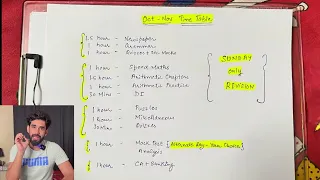 Oct-Nov Time Table
1.5 hour - Newspaper
1 hour - Grammar
1 hour -
1 hour - Speed Maths
1.5 hour - Arithmetic Chapters
1 hour - Arithmetic Practice
30 Mins - DI
1 hour - Puzzles
1 hour - Miscellaneous
30 Mins -
1 hour - Mock Test
Analysis
1 hour - CA +
SUNDAY
only
REVISION